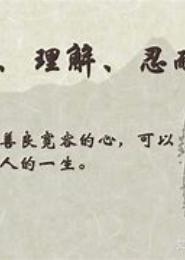 、理解、忍耐
善良宽容的心，可以
人的一生。